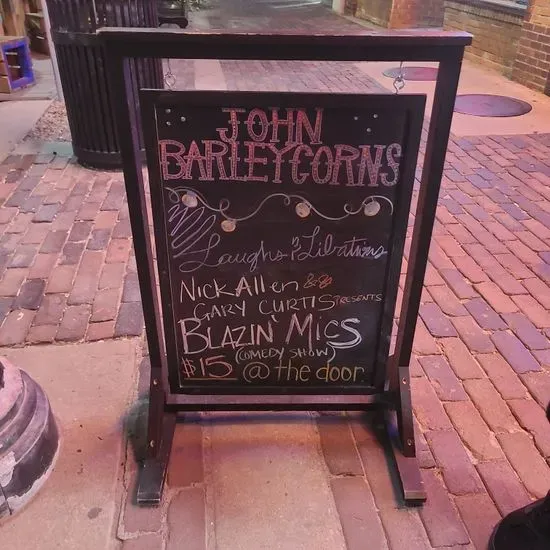 JOHN
BARLEYCORNS
Laughs n Libations
Nick Allen &
GARY CURTIS PRESENTS
BLAZIN' MICS
(COMEDY SHOW)
$15 @ the door